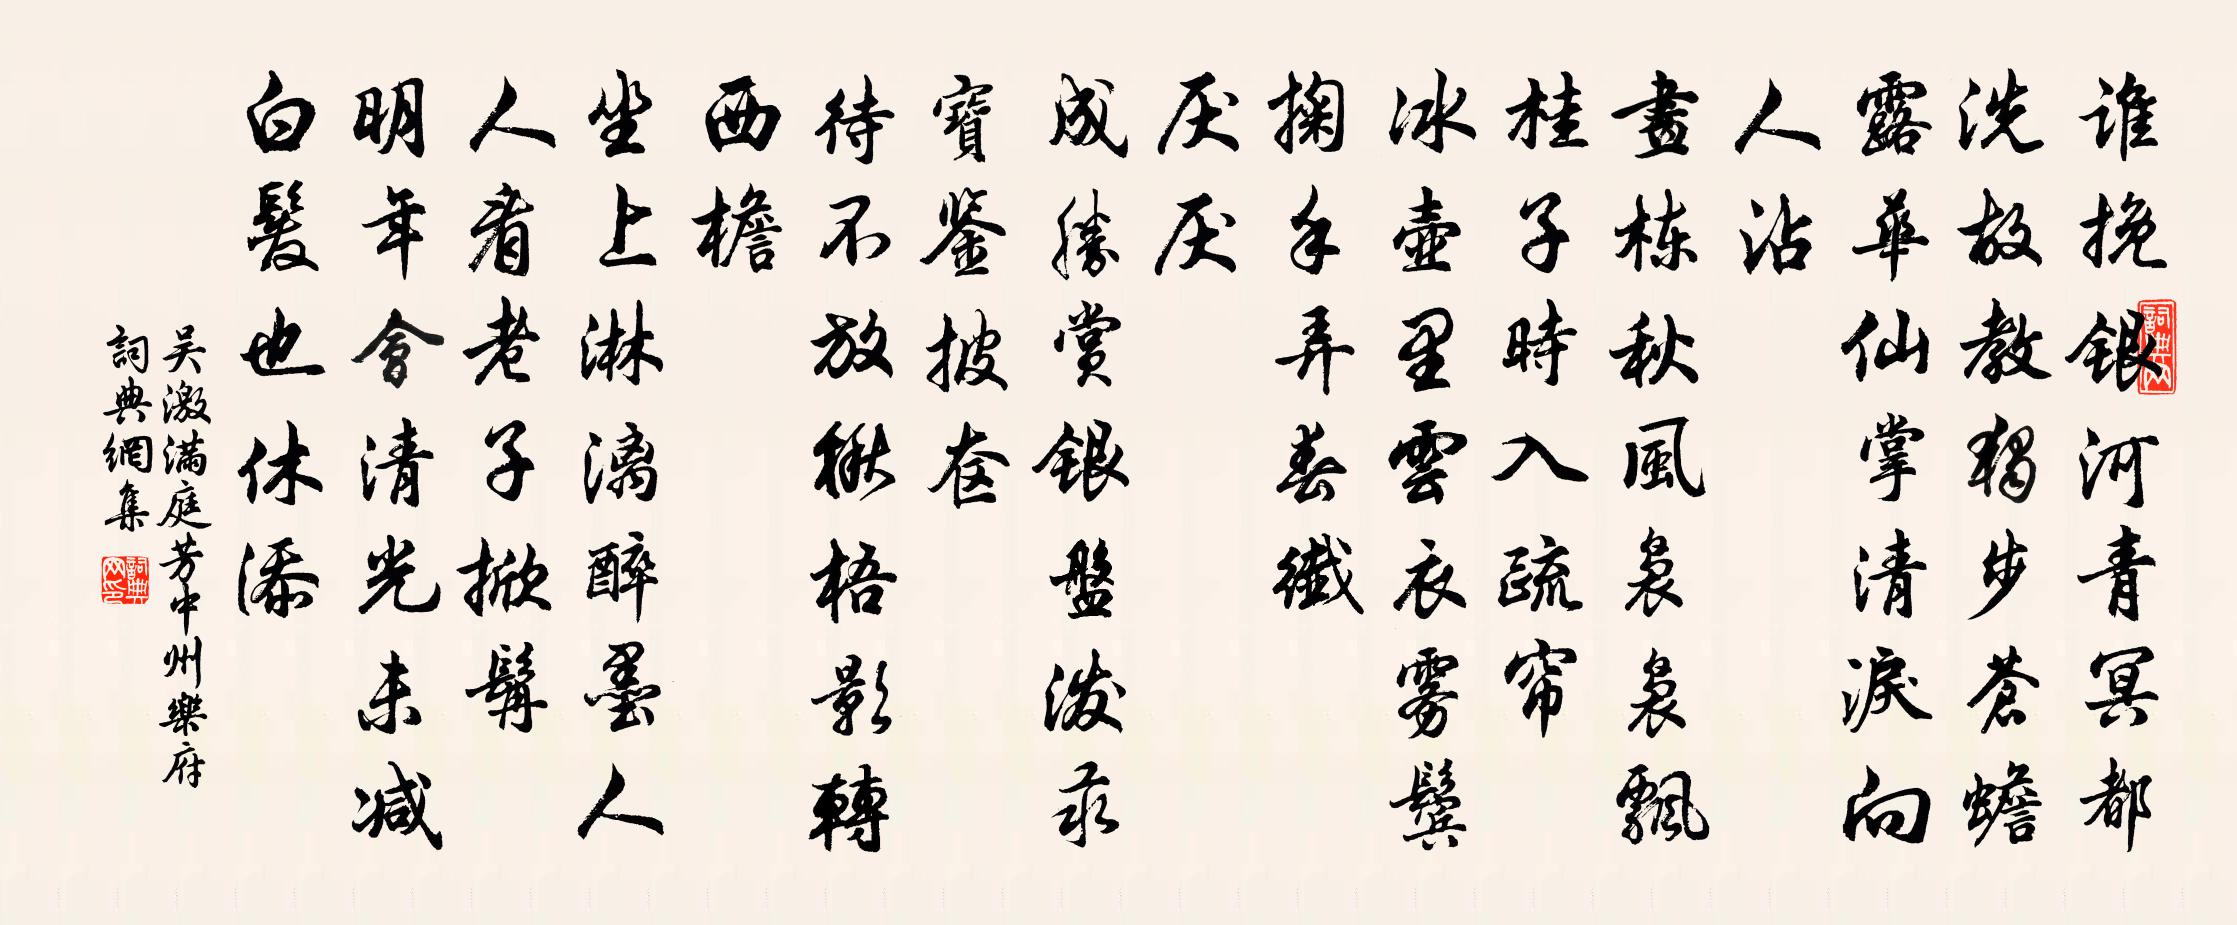 谁挽銀河青冥都
洗故教獨步蒼蟾
露華仙掌清淚向
人沾
畫栋秋風袅袅飄
桂子時入疏帘
冰壺里雲衣雾鬢
掬手弄春纖
厌厌
成勝賞銀盤潑汞
寶鑒披奁
待不放楸梧影轉
西檐
坐上淋漓醉墨人
人看老子掀髯
明年會清光未减
白髮也休添
吴激满庭芳中州樂府
詞典網集
詞典网
詞典网印